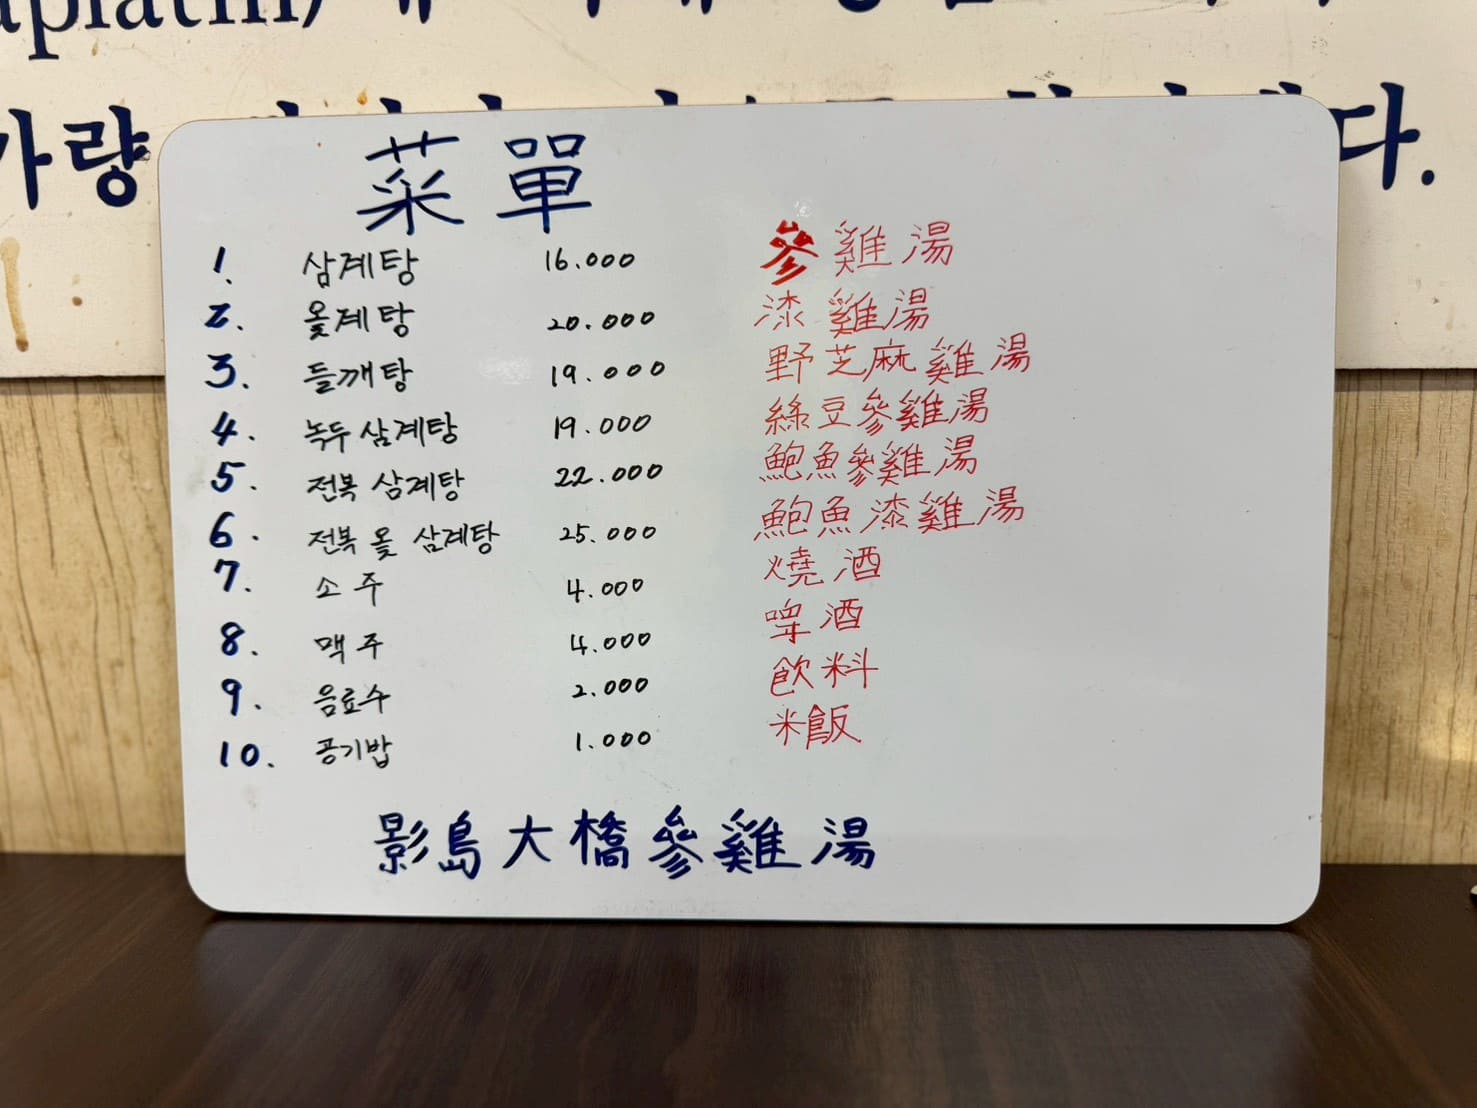 가량 다.
菜單
1. 삼계탕 16.000 參雞湯
2. 옻계탕 20.000 漆雞湯
3. 들깨탕 19.000 野芝麻雞湯
4. 녹두 삼계탕 19.000 綠豆參雞湯
5. 전복 삼계탕 22.000 鮑魚參雞湯
6. 전복 옻 삼계탕 25.000 鮑魚漆雞湯
7. 소주 4.000 燒酒
8. 맥주 4.000 啤酒
9. 음료수 2.000 飲料
10. 공기밥 1.000 米飯
影島大橋參雞湯